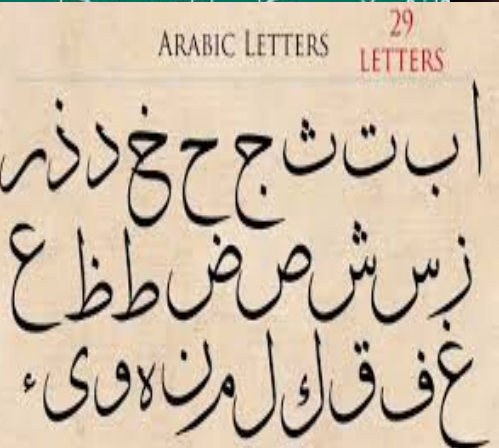 ARABIC LETTERS
29
LETTERS
ا ب ت ث ج ح خ د ذ ر
ز س ش ص ض ط ظ ع
غ ف ق ك ل م ن ه و ى ء